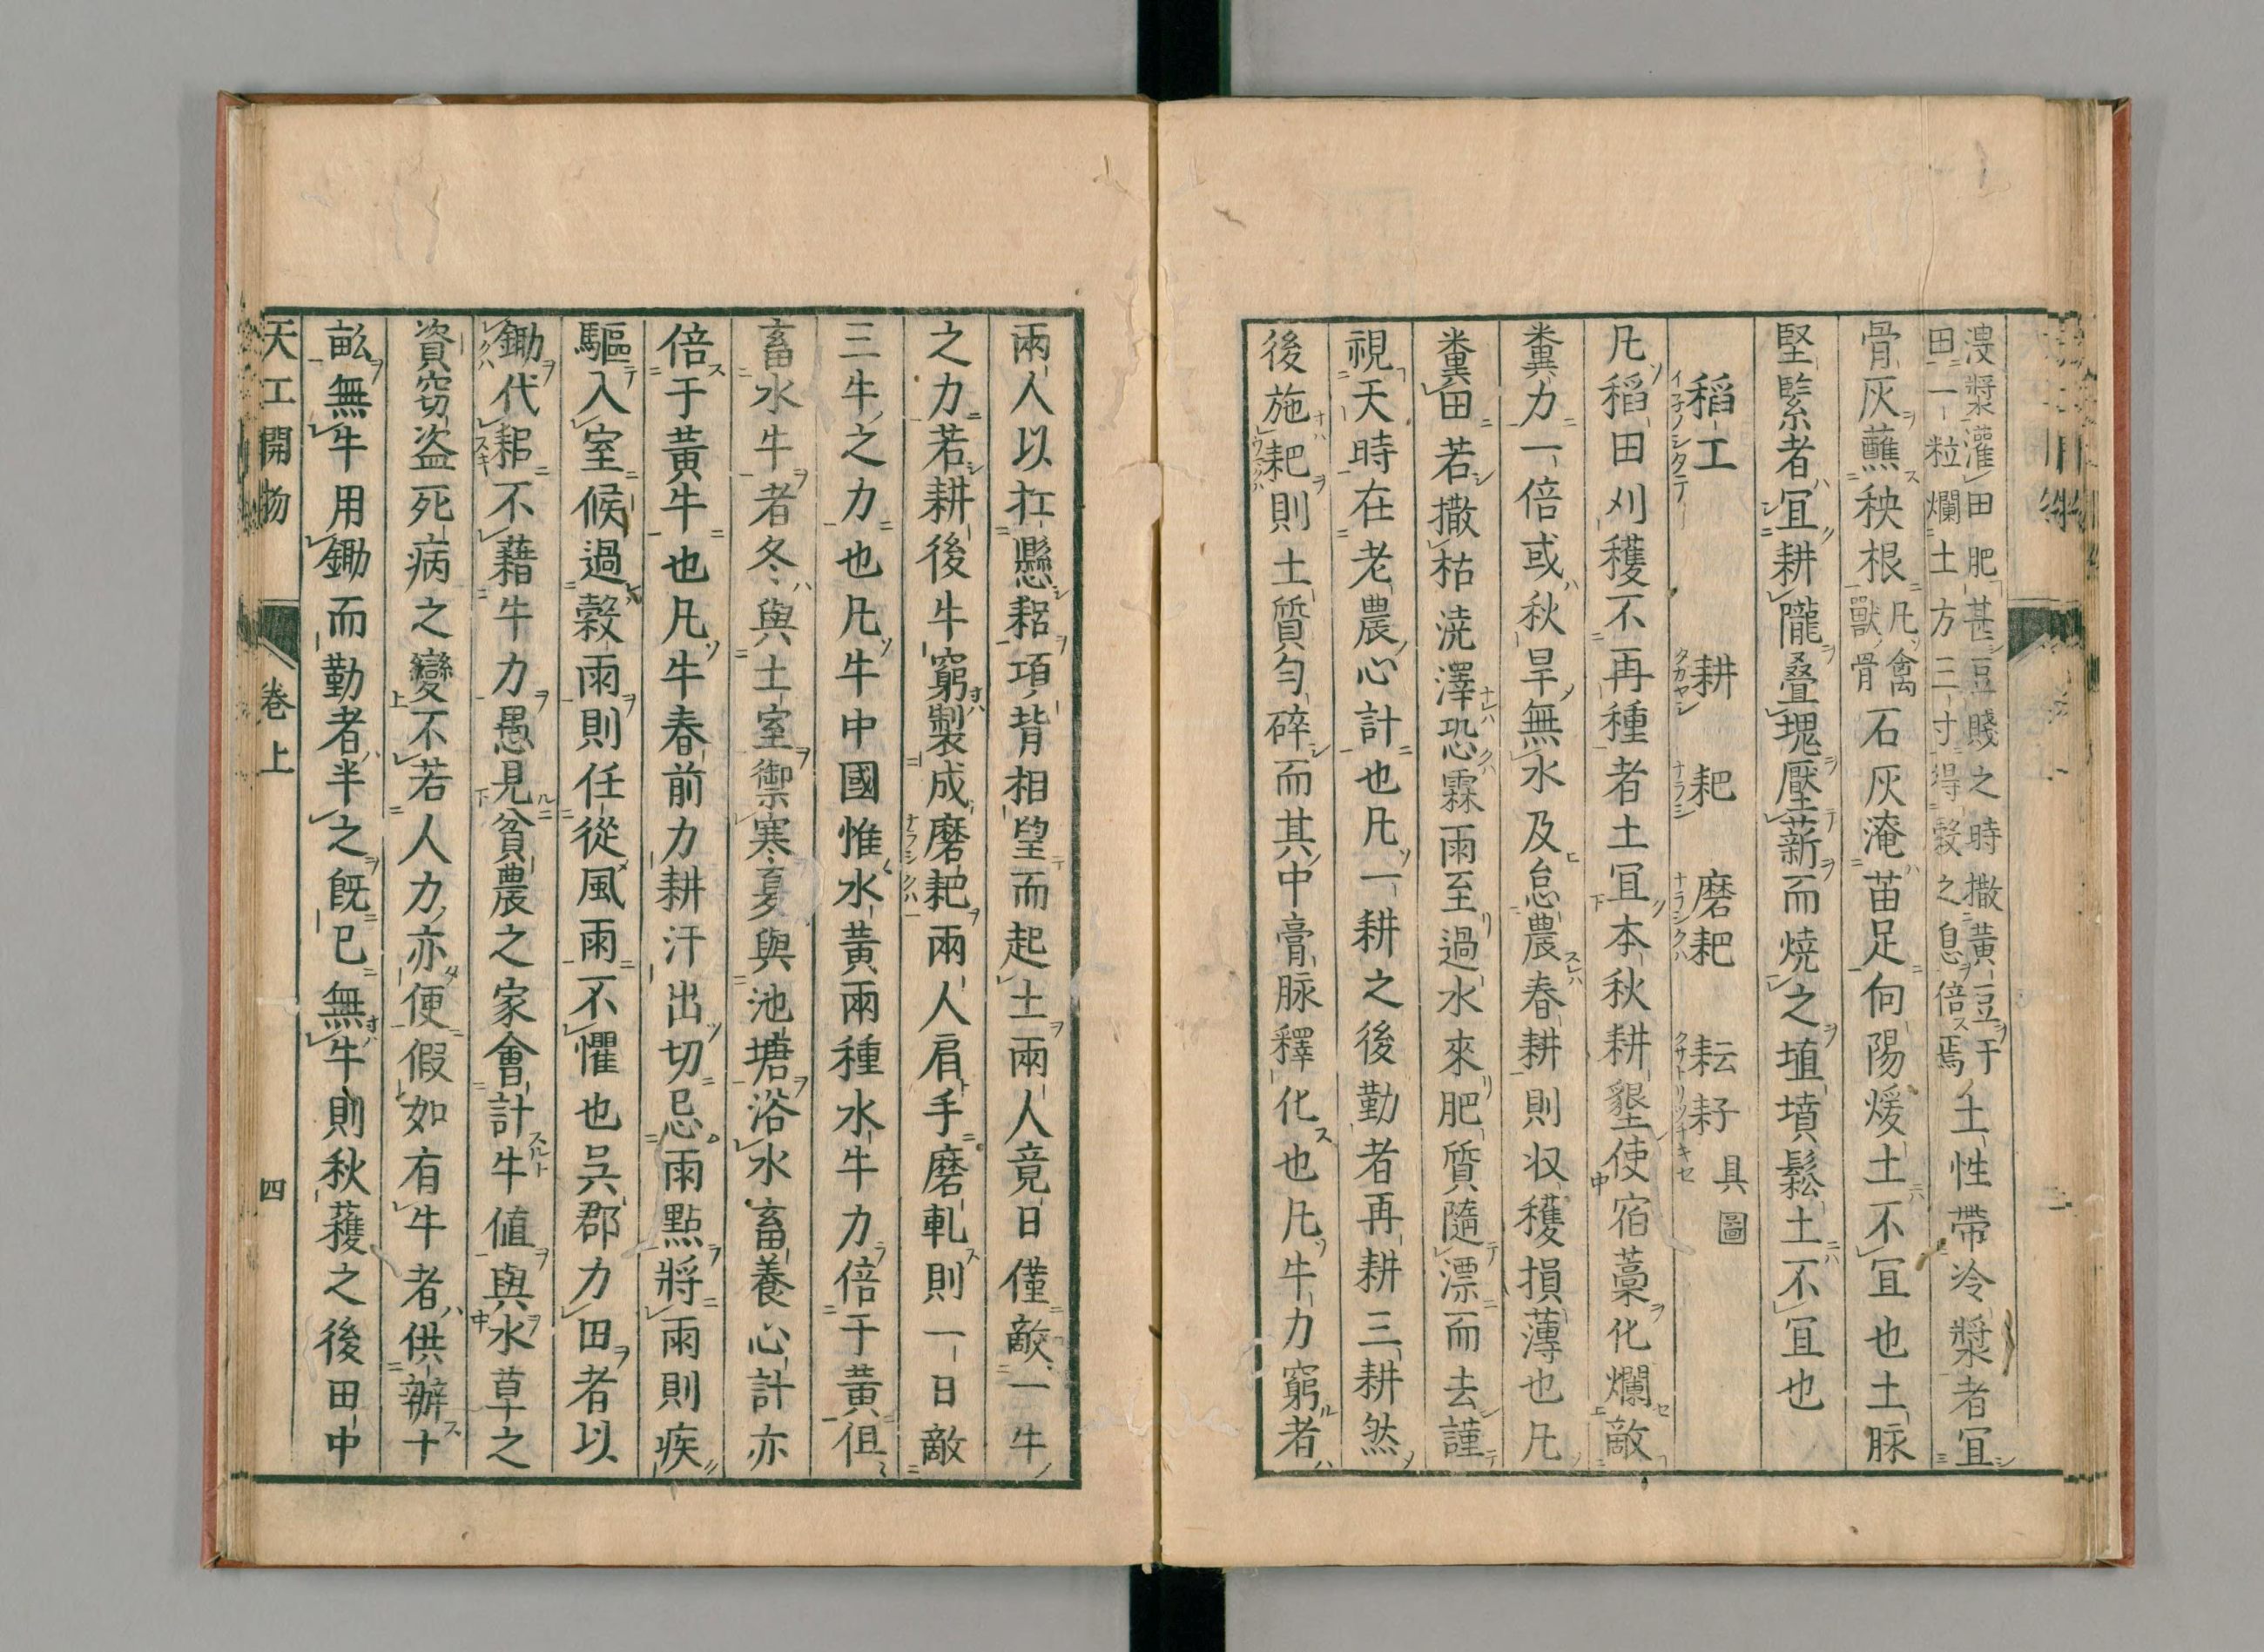 溲漿灌田肥甚豆賤之時撒黃豆于
田一粒爛土方三寸得穀之息倍焉
土性帶冷漿者宜
骨灰蘸秧根
凡禽
獸骨
石灰淹苗足向陽煖土不宜也土脉
堅緊者宜耕隴疊塊壓薪而燒之埴墳鬆土不宜也
稻工 耕 耙 磨耙 耘耔 具圖
イ子ノシクテ タカヤシ ナラシ ナラシクハ クサトリツチキセ
凡稻田刈穫不再種者土宜本秋耕墾使宿藁化爛敵
糞力一倍或秋旱無水及怠農春耕則収穫損薄也凡
糞田若撒枯澆澤恐霖雨至過水來肥質隨漂而去謹
視天時在老農心計也凡一耕之後勤者再耕三耕然
後施耙則土質勻碎而其中膏脉釋化也凡牛力窮者
兩人以扛懸耜項背相望而起土兩人竟日僅敵一牛
之力若耕後牛窮製成磨耙兩人肩手磨軋則一日敵
三牛之力也凡牛中國惟水黃兩種水牛力倍于黃但
畜水牛者冬與土室禦寒夏與池塘浴水畜養心計亦
倍于黃牛也凡牛春前力耕汗出切忌雨點將雨則疾
驅入室候過穀雨則任從風雨不懼也吳郡力田者以
鋤代耜不藉牛力愚見貧農之家會計牛値與水草之
資窃盗死病之變不若人力亦便假如有牛者供辦十
畝無牛用鋤而勤者半之既已無牛則秋蘀之後田中
天工開物 卷上 四